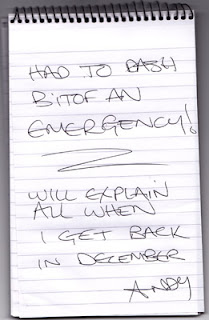 HAD TO DASH
BIT OF AN
EMERGENCY!
WILL EXPLAIN
ALL WHEN
I GET BACK
IN DECEMBER
ANDY